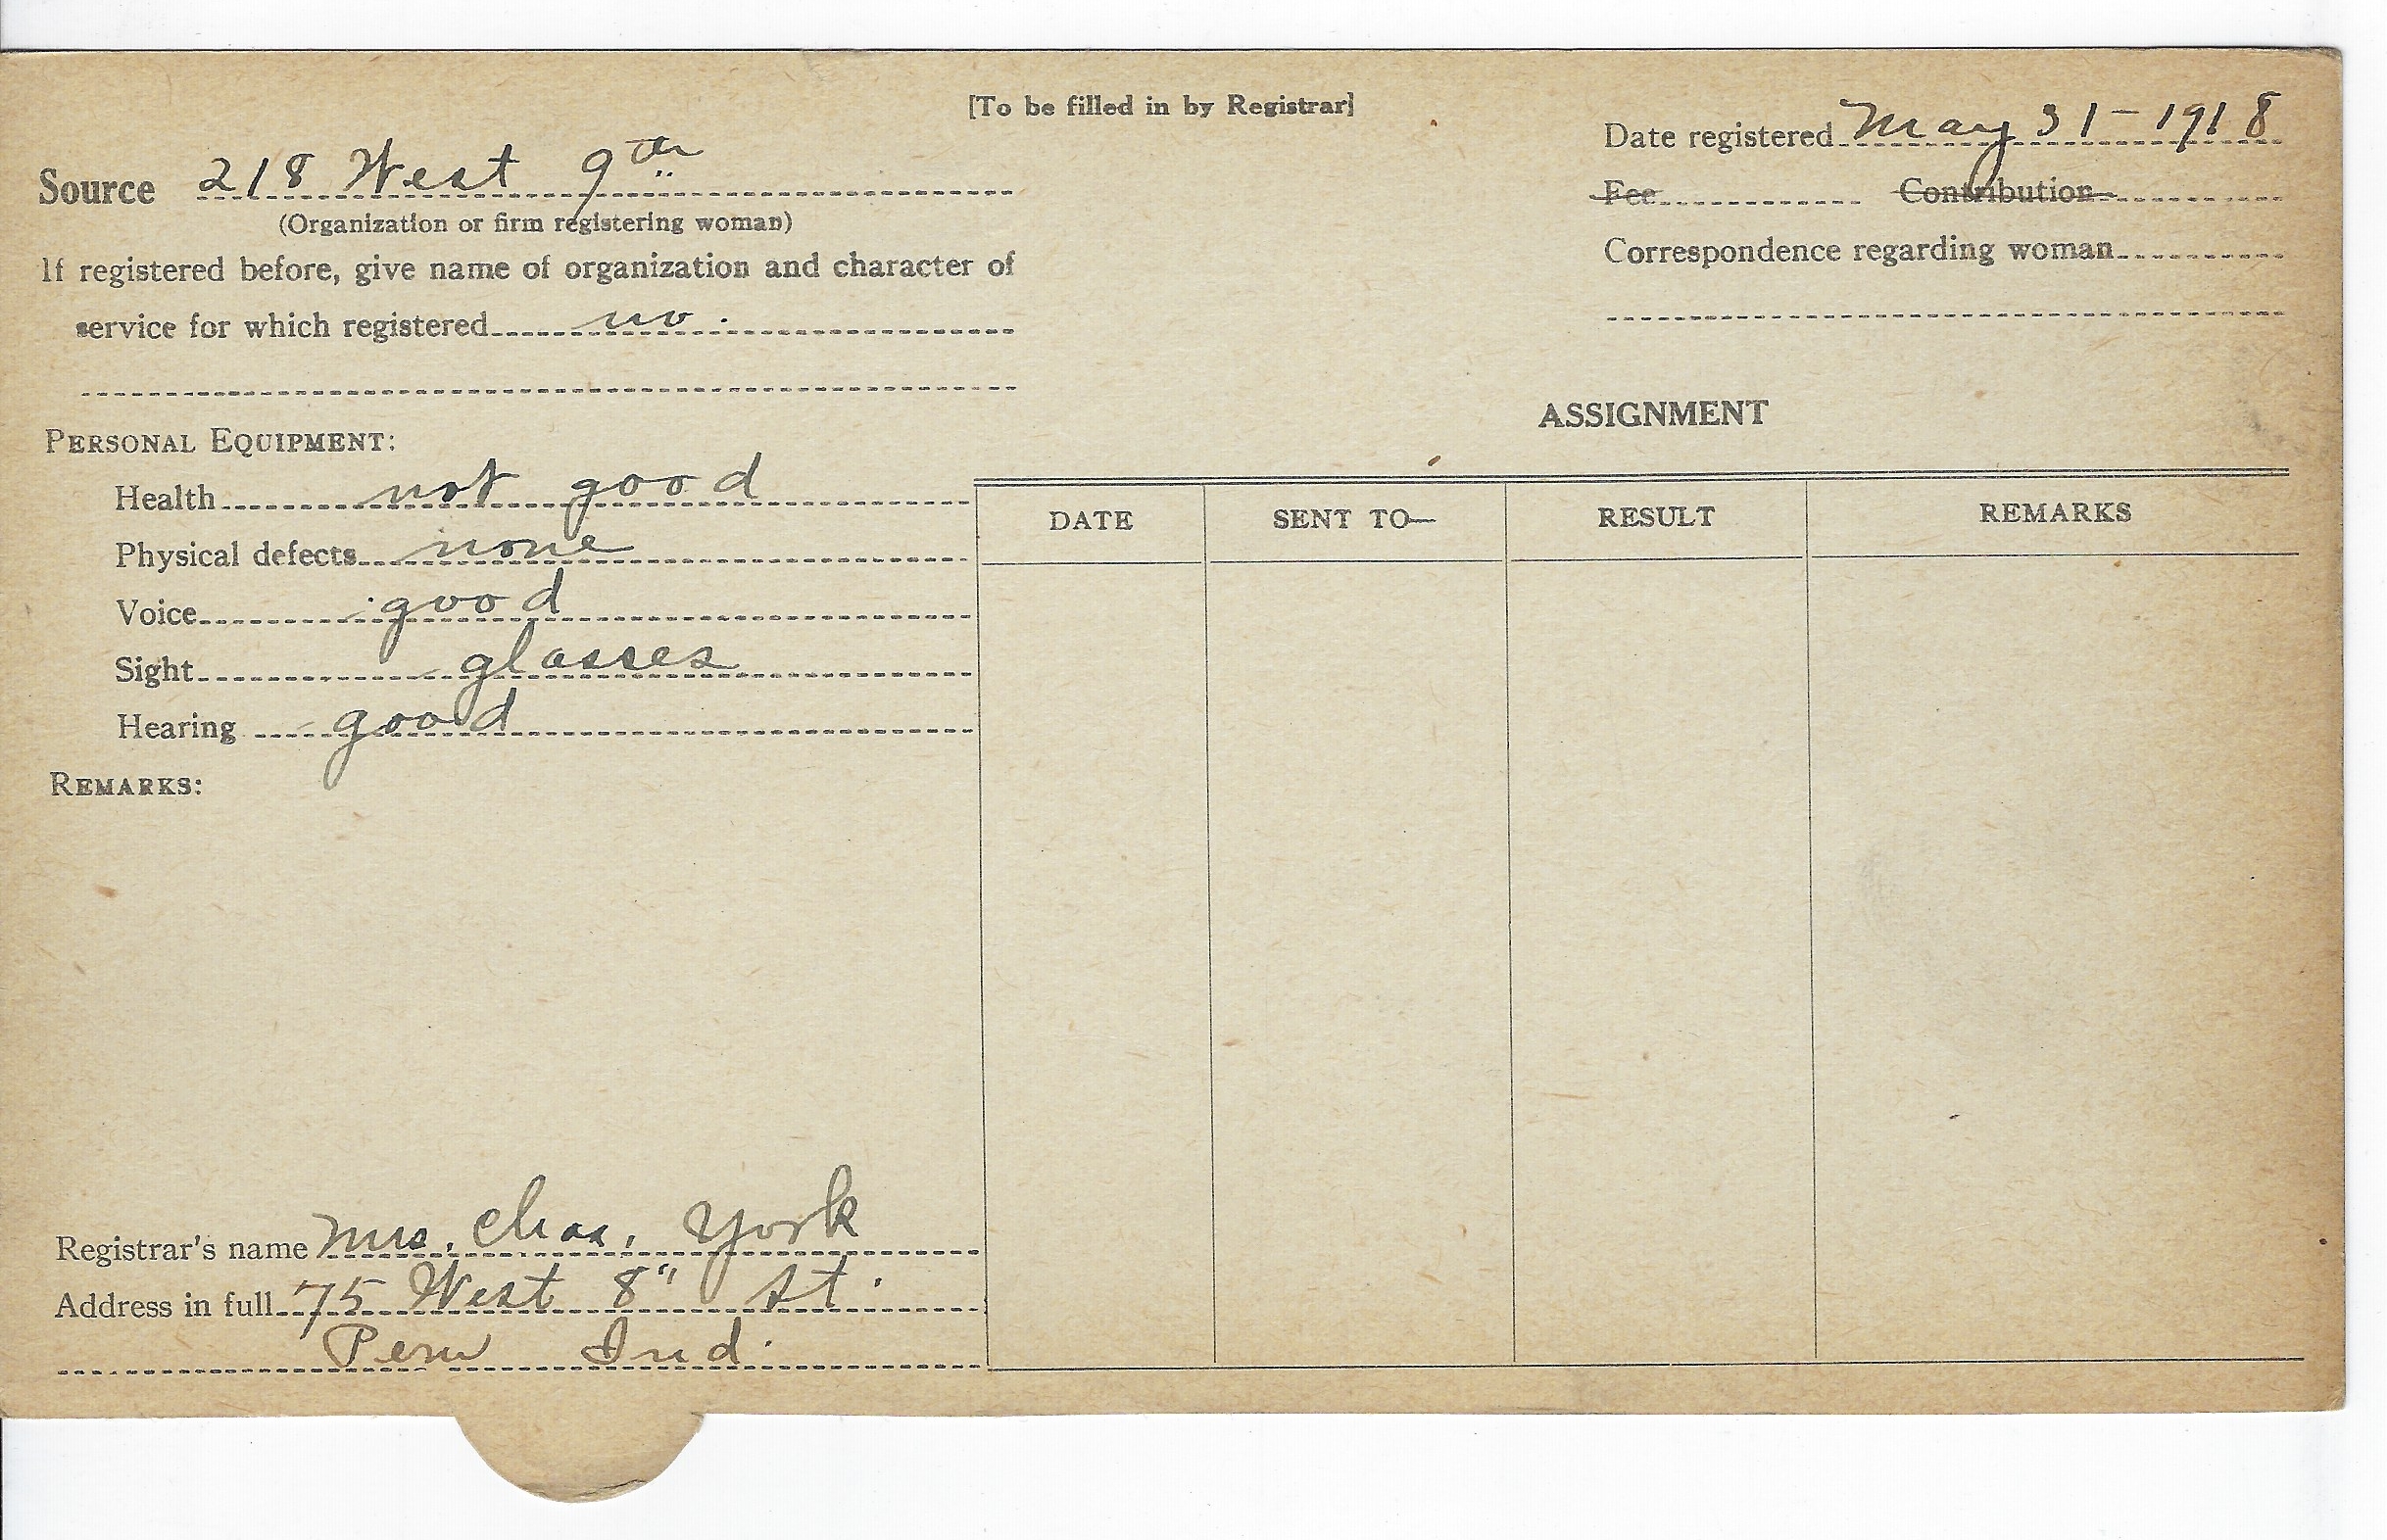 [To be filled in by Registrar]
Date registered May 31-1918
Source 218 West 9th
Fee Contribution
(Organization or firm registering woman)
Correspondence regarding woman
If registered before, give name of organization and character of
service for which registered no.
PERSONAL EQUIPMENT:
Health not good
Physical defects none
Voice good
Sight glasses
Hearing good
REMARKS:
Registrar's name Mrs. Chas. York
Address in full 75 West 8" St.
Peru Ind.
ASSIGNMENT
DATE SENT TO— RESULT REMARKS